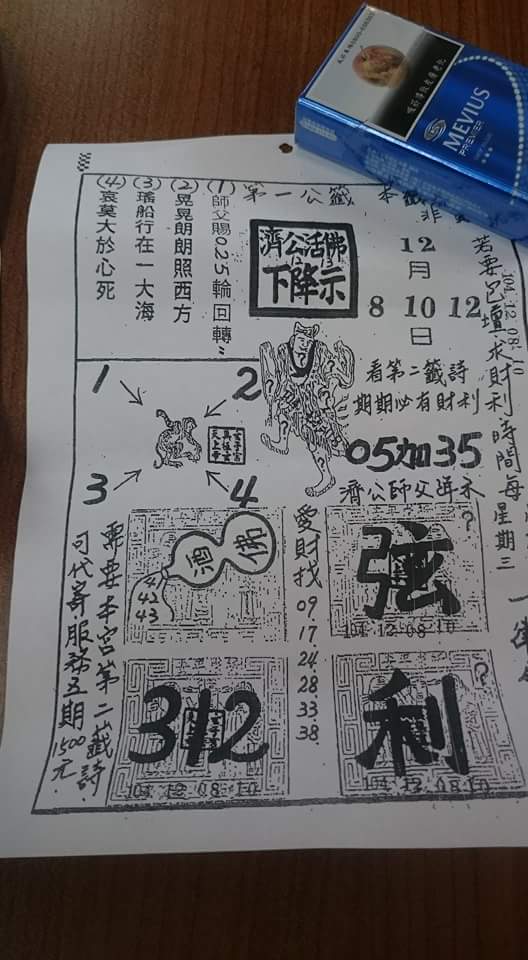 第一公籤
(1)師父賜025輪回轉"
(2)晃晃朗朗照西方
(3)瑤船行在一大海
(4)哀莫大於心死
濟公活佛
下降示
12
月
8 10 12
日
看第二籤詩
期期必有財利
05加35
濟公師父姅示
若要巴壇求財利時間每星期三
104 12 08 10
1
2
3
4
酒
佛
41
42
43
愛財找
09
17
24
28
33
38
弦
?
104 12 08 10
312
104 12 08 10
利
?
104 12 08 10
需要本宮第二籤詩
可代寄服務五期1500元
MEVIUS
PREMIER